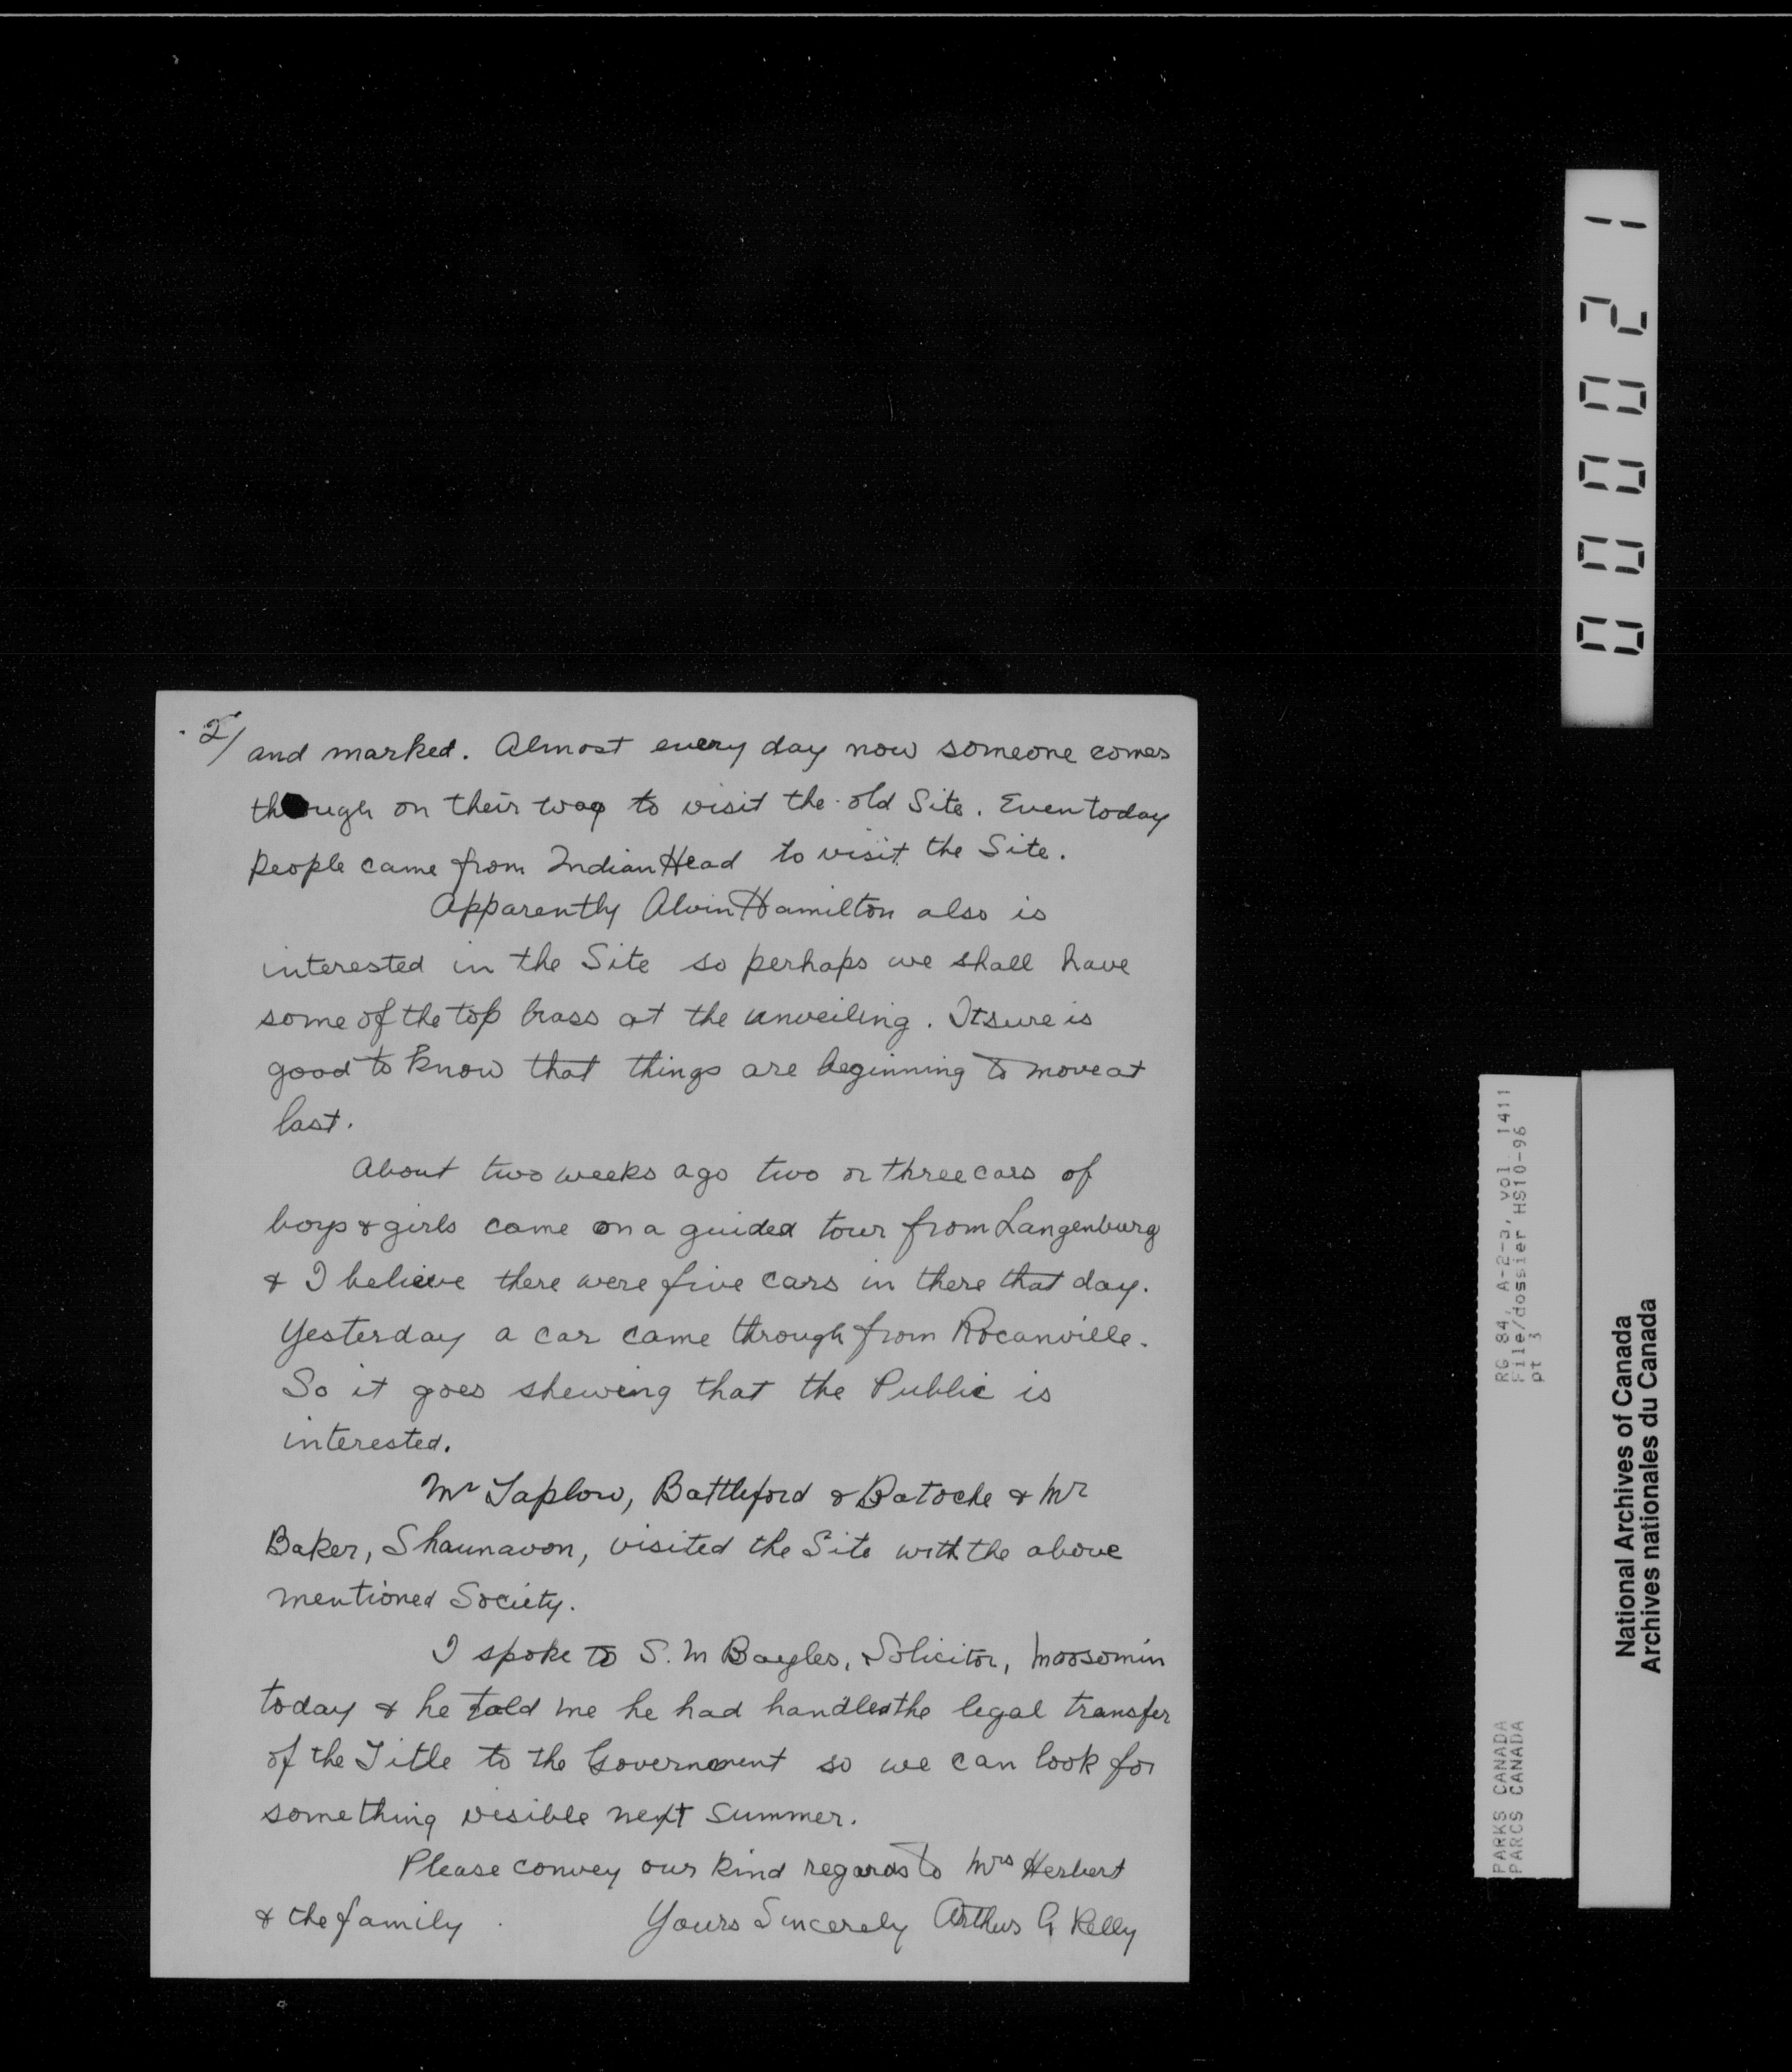 2/ and marked. Almost every day now someone comes
through on their way to visit the old Site. Even today
people came from Indian Head to visit the Site.
Apparently Alvin Hamilton also is
interested in the Site so perhaps we shall have
some of the top brass at the unveiling. It sure is
good to know that things are beginning to move at
last.
About two weeks ago two or three cars of
boys & girls came on a guided tour from Langenburg
& I believe there were five cars in there that day.
Yesterday a car came through from Rocanville.
So it goes shewing that the Public is
interested.
Mr Taplow, Battleford & Batoche & Mr
Baker, Shaunavon, visited the Site with the above
mentioned Society.
I spoke to S. M Bayles, Solicitor, Moosomin
today & he told me he had handled the legal transfer
of the Title to the Government so we can look for
something visible next summer.
Please convey our kind regards to Mrs Herbert
& the family. Yours Sincerely Arthur G Kelly
000021
RG 84, A-2-a, vol 1411
File/dossier HS10-96
pt 3
PARKS CANADA
PARCS CANADA
National Archives of Canada
Archives nationales du Canada